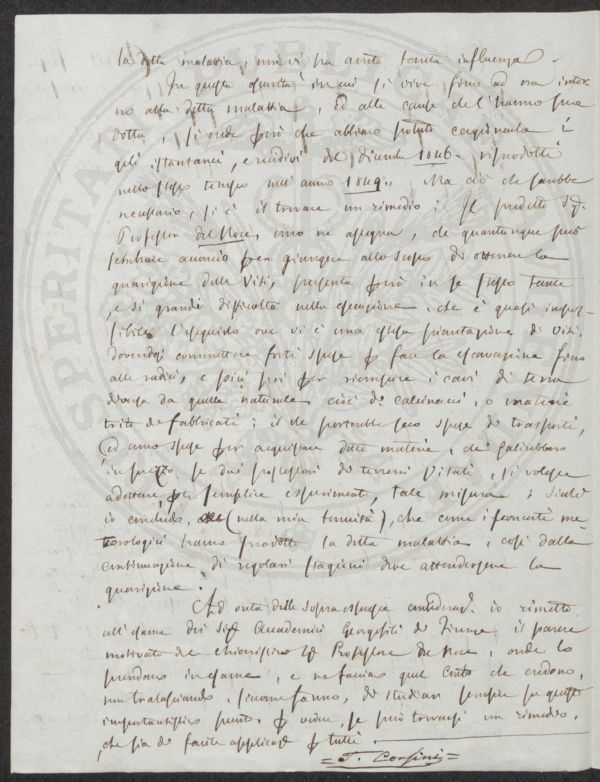 la detta malattia, non vi ha avuto tanta influenza.
In questa oscurità in cui si vive fino ad ora intor-
no alla detta malattia, ed alle cause che l'hanno pro
dotta, si vede però che abbiano potuto
gli istantanei, e del Dicembre 1846 riprodotti
nello stesso tempo nell'anno 1849. Ma ciò che sarebbe
necessario, si è il trovare un rimedio; Il predetto Sig.
Professor del Noce, uno ne assegna, che quantunque può
sembrare adatto per giungere allo scopo di ottenere la
guarigione delle Viti, presenta però in se stesso tante
e sì grandi difficoltà nella esecuzione, che è quasi impos-
sibile l'eseguirlo ove vi è una estesa piantagione di Viti,
dovendosi commettere forti spese per fare la escavazione fino
alle radici, e più poi per riempire i cavi di terra
diversa da quella naturale, cioè di calcinacci, o materie
trite di fabbricati; il che porterebbe seco spese di trasporti,
ed anco spese per acquistare dette materie, che salirebbero
in prezzo se dai possessori di terreni Vitati, si volesse
adottare, per semplice esperimento, tale misura;
io concludo, (nella mia tenuità), che come i fenomeni me
teorologici hanno prodotto la detta malattia, così dalla
continuazione di regolari stagioni deve attendersene la
guarigione.
Ad onta delle sopra espresse considerazi. io rimetto
all'esame dei Sigg. Accademici Georgofili di Firenze il parere
motivato del chiarissimo Sig. Professore Del Noce, onde lo
prendano in esame, e ne facciano quel conto che credono,
non tralasciando, siccome fanno, di studiare sempre su questo
importantissimo punto, per vedere, se può trovarsi un rimedio,
che sia di facile applicaz. per tutti.
= T. Corsini =